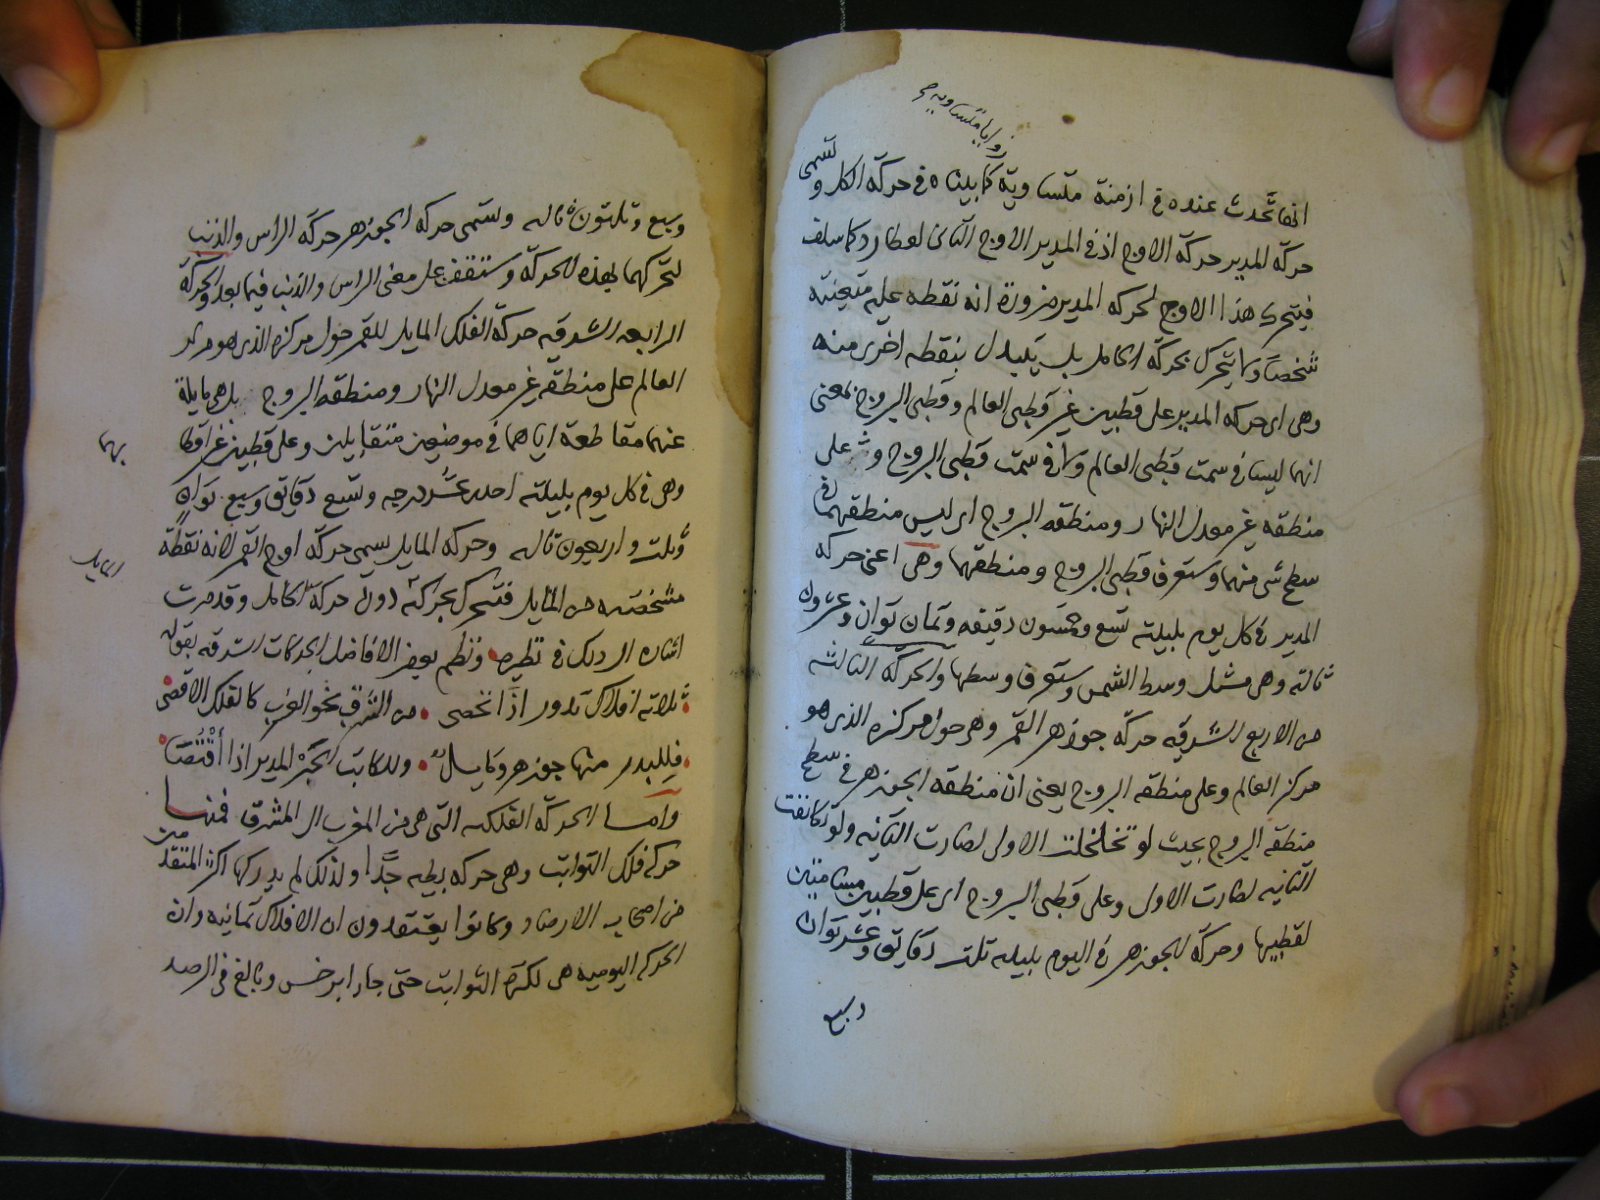 زوايا متساوية صح
انها تحدث عنده في ازمنة متساوية كما بيناه في حركة الكل وتسمى
حركة المدير حركة الاوج اذ في المدير الاوج الثاني لعطارد كما سلف
فيتحرك هذا الاوج لحركة المدير ضرورة انه نقطة عليه متعينة
شخصا ولا يتحرك بحركة الحامل بل يتبدل بنقطة اخرى منه
وهي اي حركة المدير على قطبين غير قطبي العالم وقطبي البروج بمعنى
انهما ليسا في سمت قطبي العالم ولا في سمت قطبي البروج وعلى
منطقة غير معدل النهار ومنطقة البروج اي ليس منطقتهما في
سطح شي منهما وستعرف قطبي البروج ومنطقتها وهي اعني حركة
المدير في كل يوم بليلته تسع وخمسون دقيقة وثمان ثوان وعشرون
ثالثة وهي مثل وسط الشمس وستعرف وسطها والحركة الثالثة
من الاربع الشرقية حركة جوزهر القمر وهي حول مركزه الذي هو
مركز العالم وعلى منطقة البروج يعني ان منطقة الجوزهر في سطح
منطقة البروج بحيث لو تخلخلت الاولى لصارت الثانية ولو تكاثفت
الثانية لصارت الاولى وعلى قطبي البروج اي على قطبين مسامتين
لقطبيها وحركة الجوزهر في اليوم بليلته ثلث دقايق وعشر ثوان
وسبع
وسبع وثلثون ثالثة وتسمى حركة الجوزهر حركة الراس والذنب
لتحركهما بهذه الحركة وستقف على معنى الراس والذنب فيما بعد والحركة
الرابعة الشرقية حركة الفلك المايل للقمر حول مركزه الذي هو مركز
العالم على منطقة غير معدل النهار ومنطقة البروج بل هي مايلة
عنهما مقاطعة اياهما في موضعين متقابلين وعلى قطبين غير اقطا
بهما
وهي في كل يوم بليلته احد عشر درجة وتسع دقايق وسبع ثوان
وثلث واربعون ثالثة وحركة المايل تسمى حركة اوج القمر لانه نقطة
المايل
مشخصة من المايل فتتحرك بحركته دون حركة الحامل وقد مرت
اشارة الى ذلك في نظيره ونظم بعض الافاضل الحركات الشرقية بقوله
ثلاثة افلاك تدور اذا تحصى من الشرق نحو الغرب كالفلك الاقصى
فللبدر منها جوزهر ومايل وللكاتب الحبر المدير اذا اقتصا
واما الحركة الفلكية التي هي من المغرب الى المشرق فمنها
حركة فلك الثوابت وهي حركة بطية جدا ولذلك لم يدركها اكثر المتقدمين
من اصحاب الارصاد وكانوا يعتقدون ان الافلاك ثمانية وان
الحركة اليومية هي لكرة الثوابت حتى جاء ابرخس وبالغ في الرصد